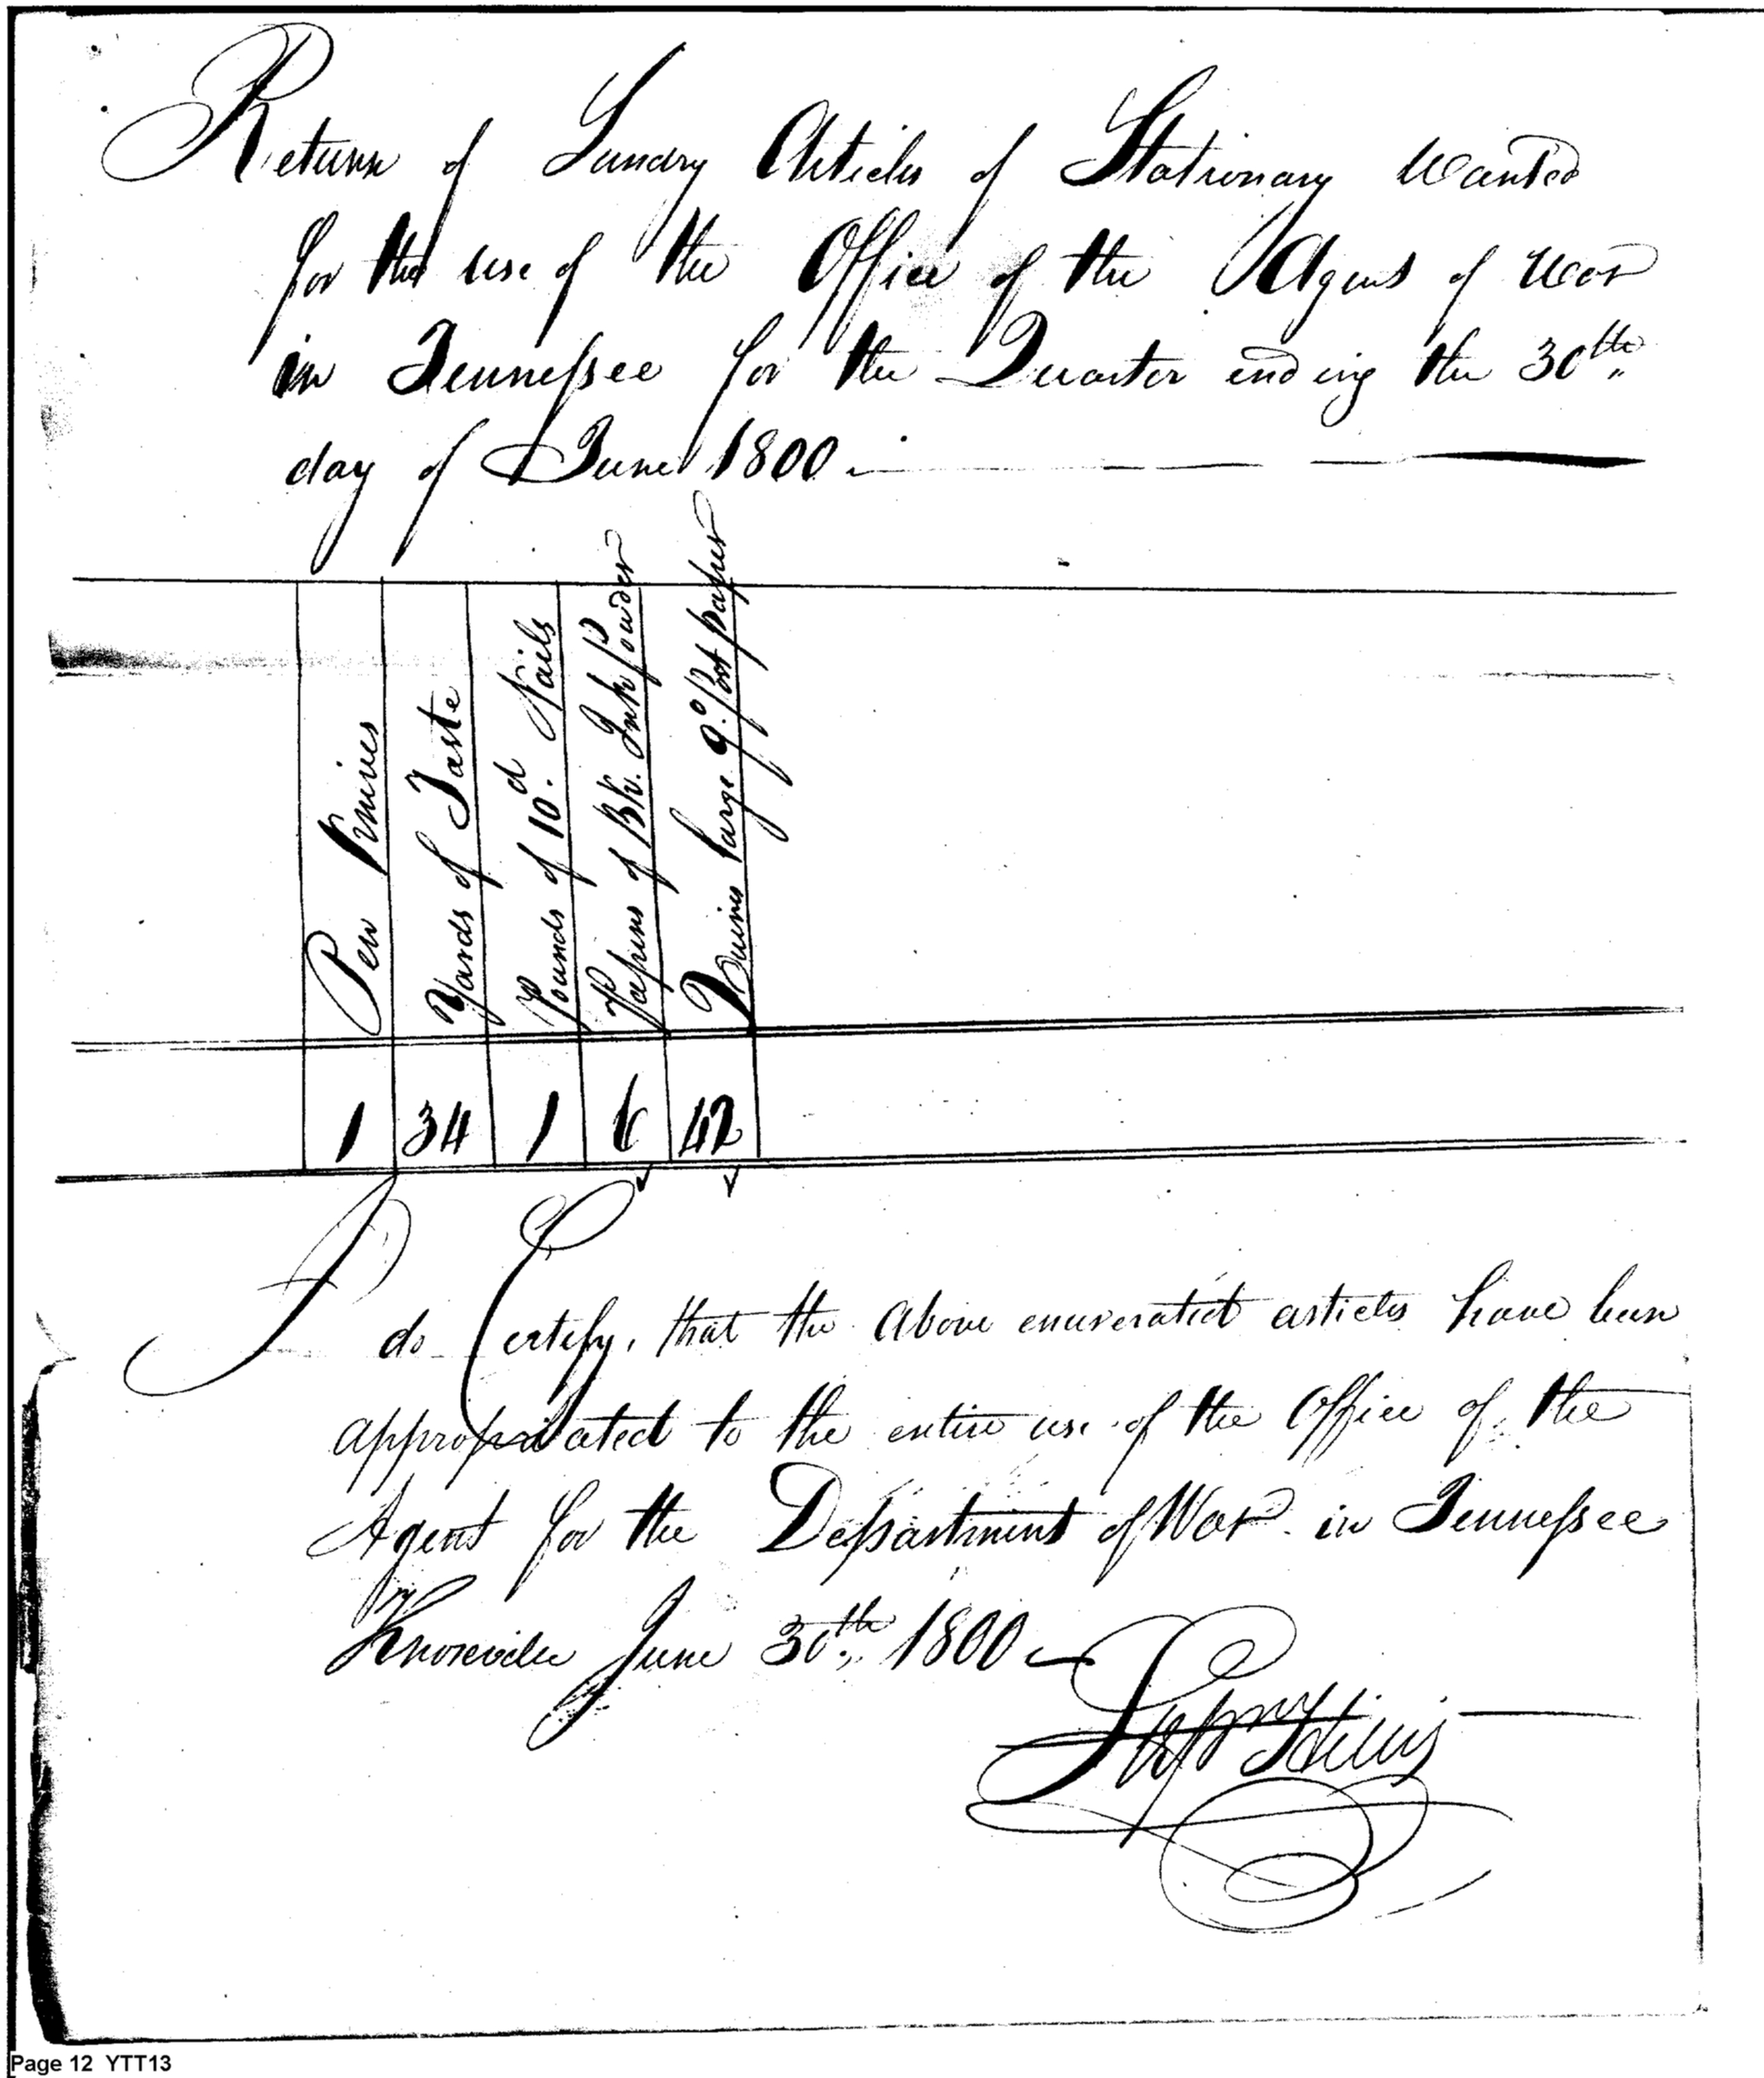 Return of Sundry Articles of Stationary Wanted
for the use of the Office of the Agent of War
in Tennessee for the Quarter ending the 30th
day of June 1800
Pen Knives
Yards of Taste
Pounds of 10d Nails
Papers of Bk. Ink powder
Quires large 9o post paper
1 34 1 6 42
I do Certify, that the above enumerated articles have been
appropriated to the entire use of the Office of the
Agent for the Department of War in Tennessee
Knoxville June 30th 1800
Page 12 YTT13